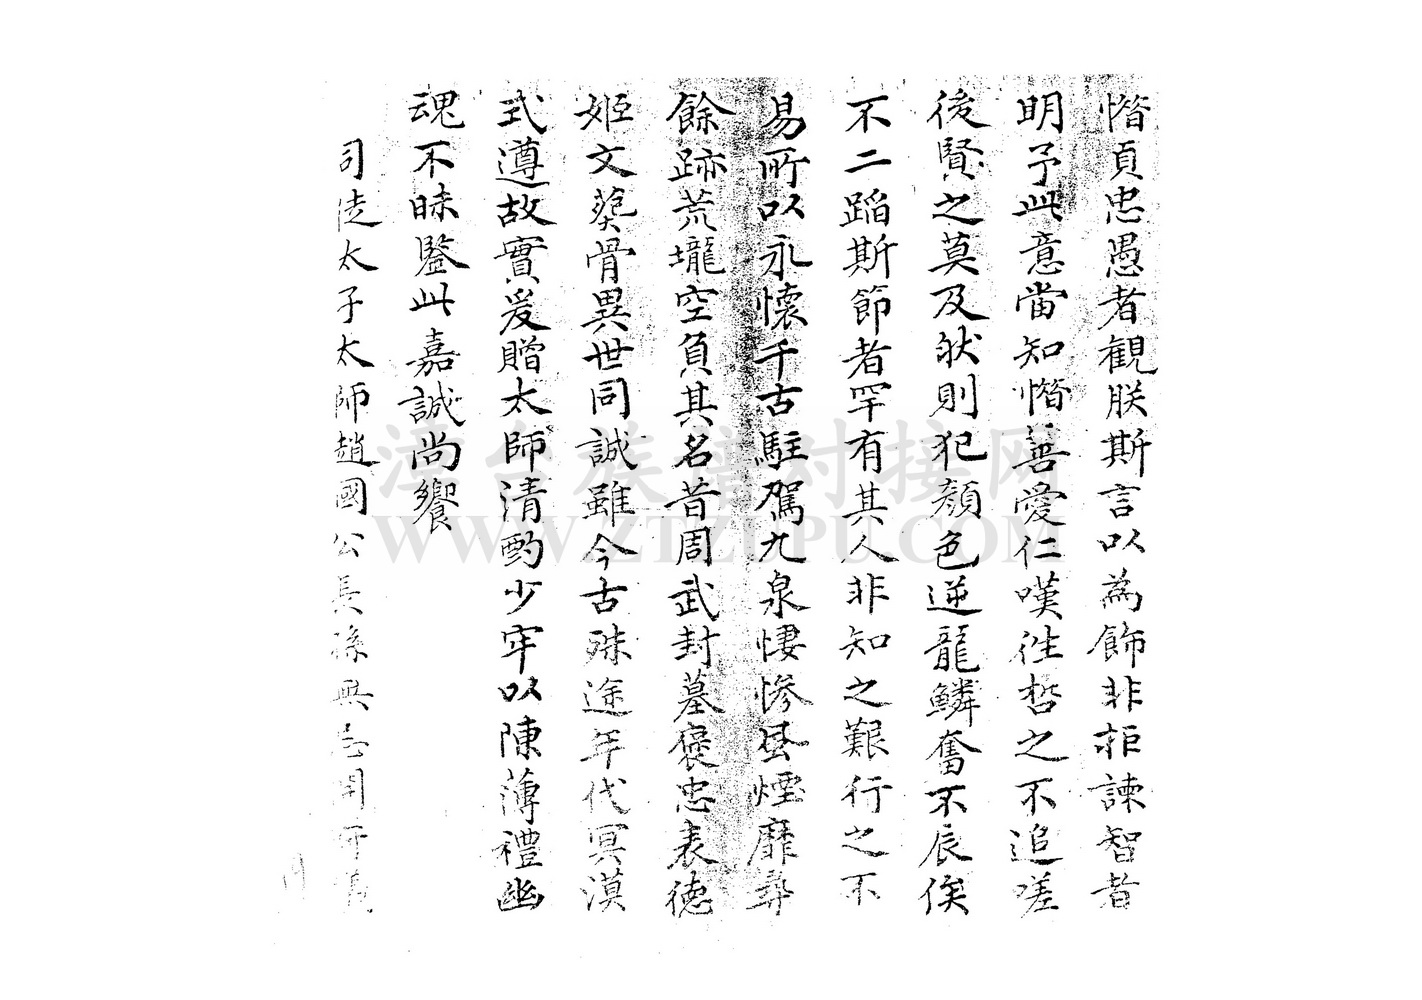 惛貞忠愚者觀朕斯言以為飾非拒諫智者
明予此意當知惛善愛仁嘆往哲之不追嗟
後賢之莫及然則犯顏色逆龍鱗奮不辰俟
不二蹈斯節者罕有其人非知之艱行之不
易所以永懷千古駐駕九泉悽慘風煙靡尋
餘跡荒壠空負其名昔周武封墓褒忠表德
姬文葬骨異世同誠雖今古殊途年代冥漠
式遵故實爰贈太師清酌少牢以陳薄禮幽
魂不昧鑒此嘉誠尚饗
司徒太子太師趙國公長孫無忌開府儀
漳台族譜对接网
WWW.ZTZUPU.COM